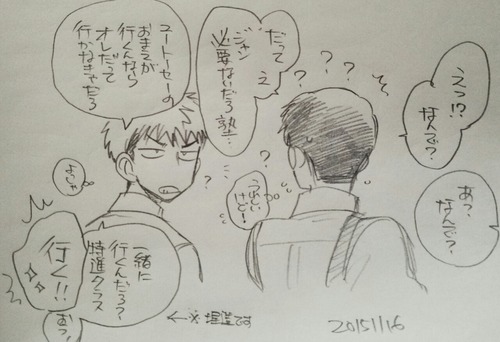 えっ!?
なんで?
あ?
なんで?
だって
え
ジャン
必要ないだろ塾…
ユートーセーの
おまえが
行くんなら
オレだって
行かなきゃだろ
うれしい
けど!
一緒に
行くんだろ?
特進クラス
行く!!
おっ
20151116